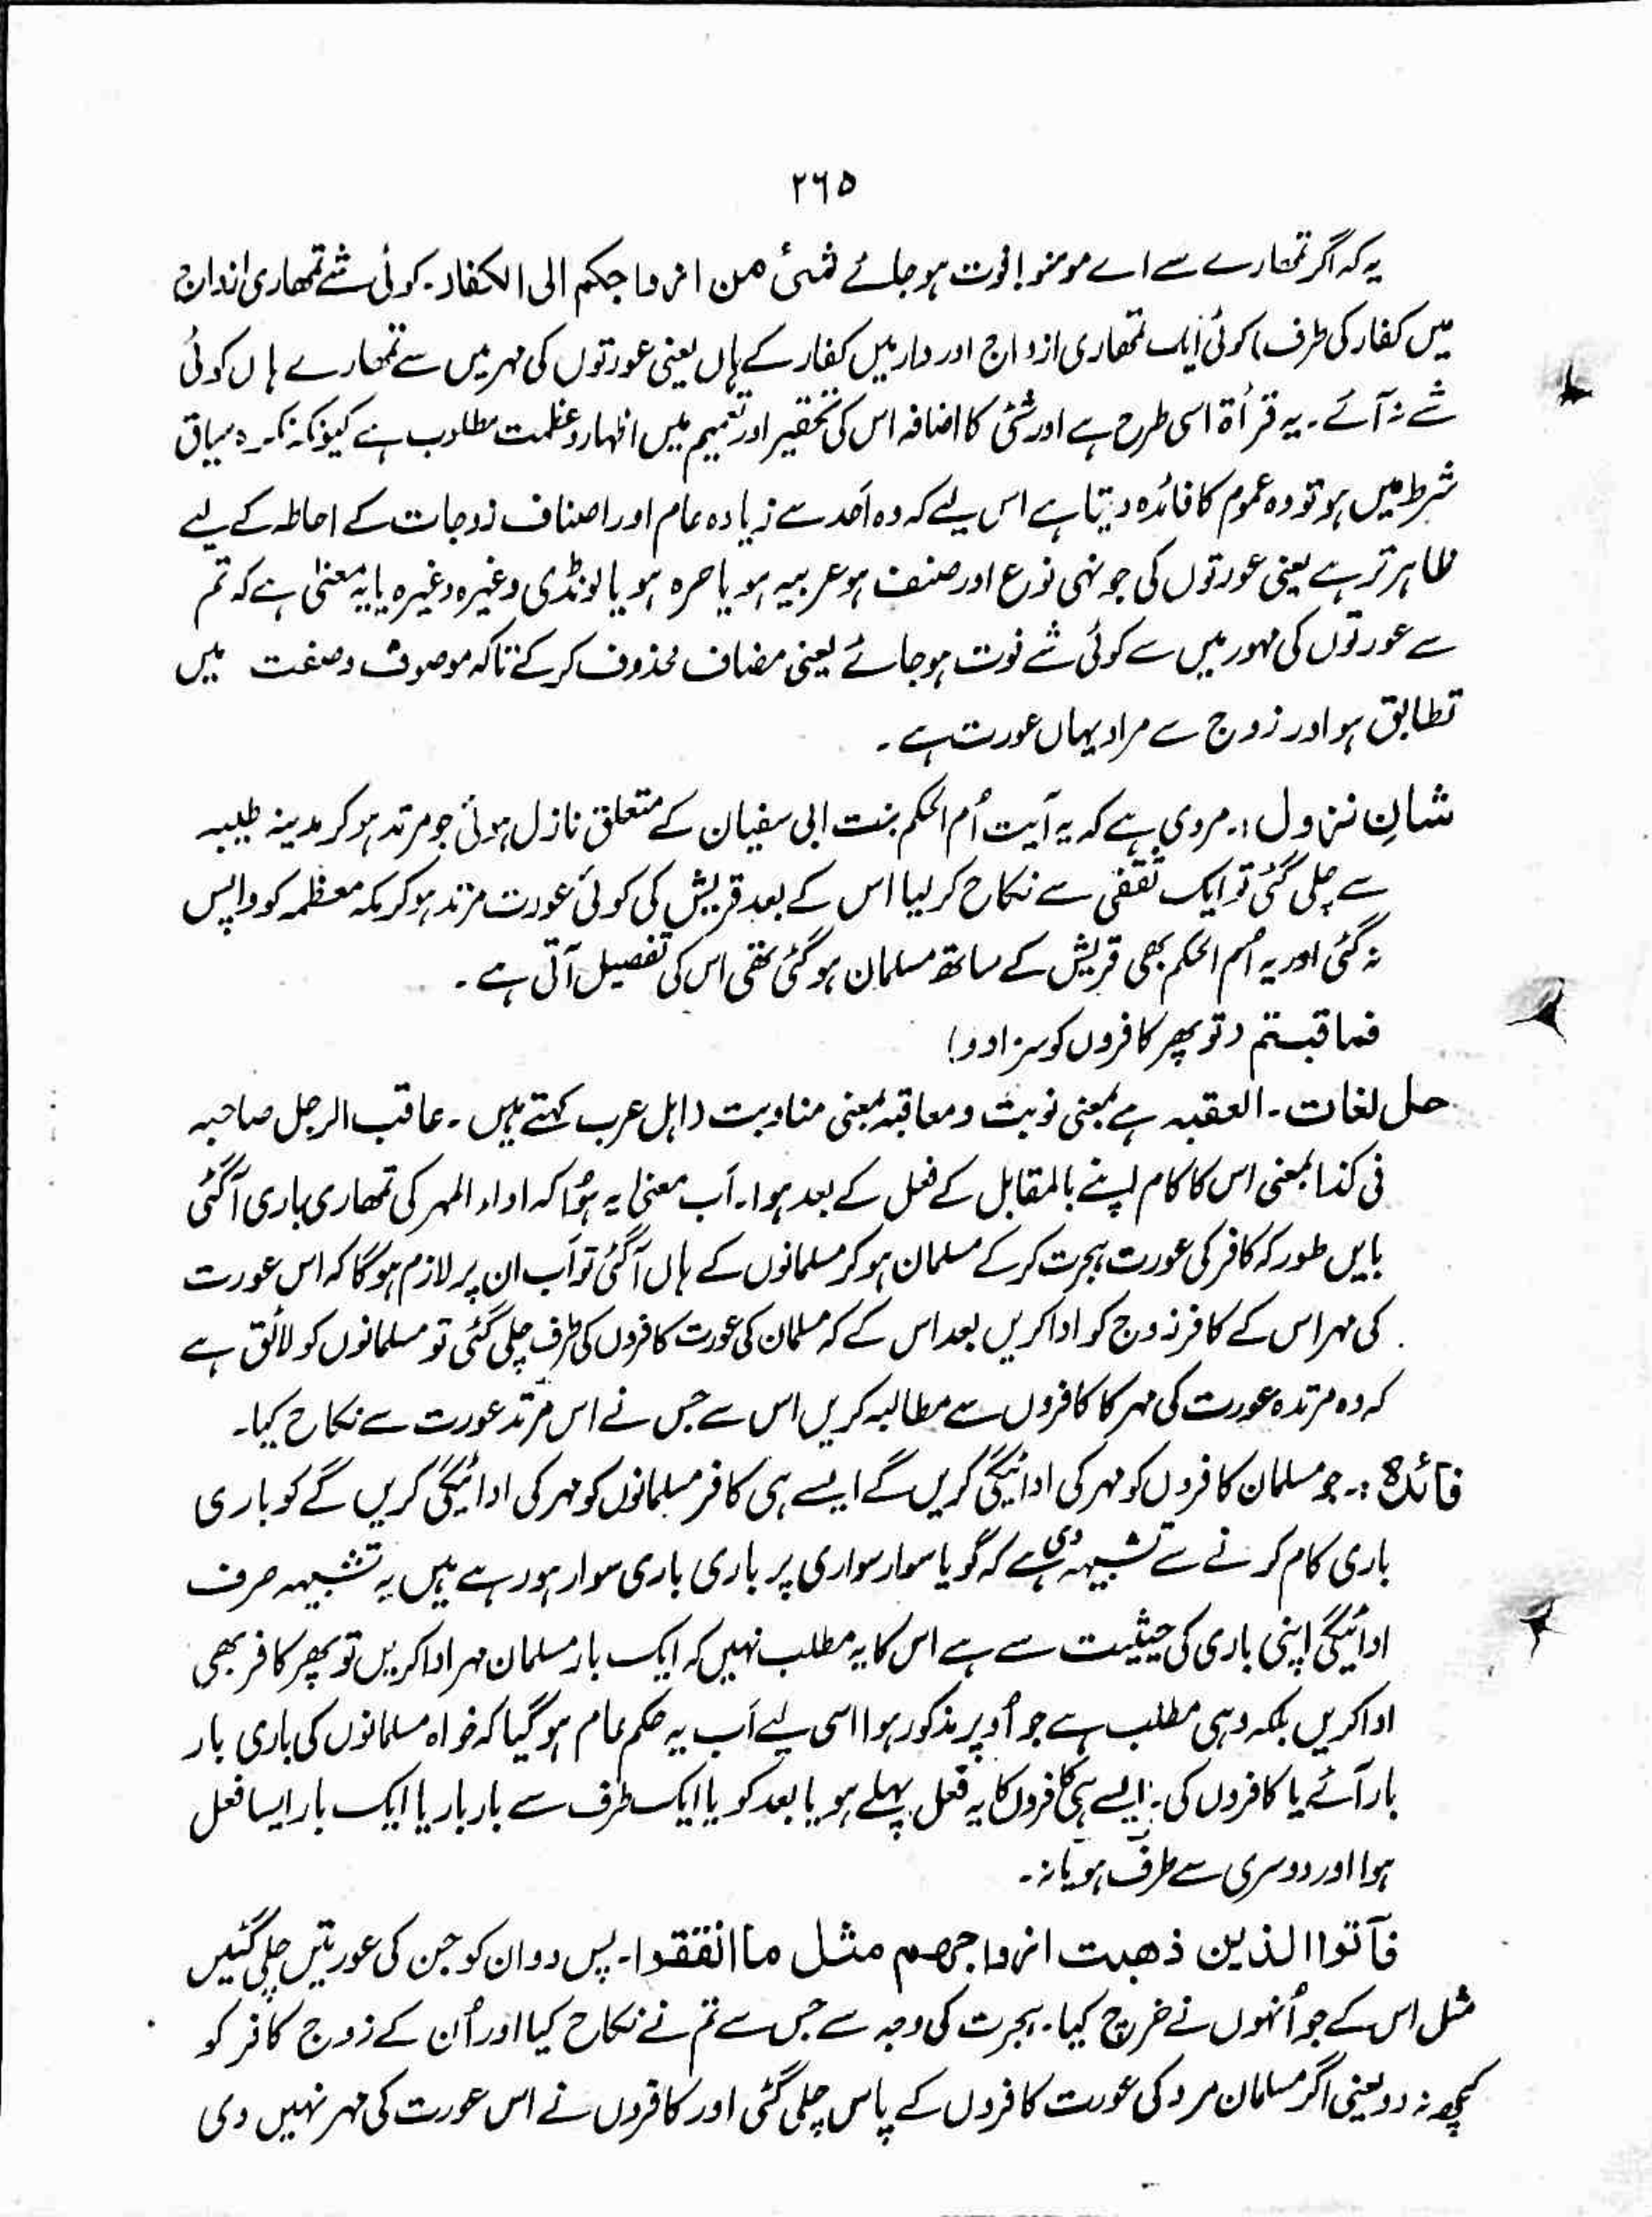 ۲۶۵
یہ کہ اگر تمھارے سے اے مومنو! فوت ہو جائے شئ من ازواجکم الی الکفار۔ کوئی شے تمھاری ازواج
میں کفار کی طرف) کوئی ایک تمھاری ازواج اور دار میں کفار کے ہاں یعنی عورتوں کی مہر میں سے تمھارے ہاں کوئی
شے نہ آئے۔ یہ قرأۃ اسی طرح ہے اور شئ کا اضافہ اس کی تحقیر اور تعمیم میں اظہار و عظمت مطلوب ہے کیونکہ نکرہ سیاق
شرط میں ہو تو وہ عموم کا فائدہ دیتا ہے اس لیے کہ وہ اَحد سے زیادہ عام اور اصناف زوجات کے احاطہ کے لیے
ظاہر تر ہے یعنی عورتوں کی جونسی نوع اور صنف ہو عربیہ ہو یا حرہ ہو یا لونڈی وغیرہ وغیرہ یا یہ معنیٰ ہے کہ تم
سے عورتوں کی مہور میں سے کوئی شے فوت ہو جائے یعنی مضاف محذوف کر کے تاکہ موصوف و صفت میں
تطابق ہو اور زوج سے مراد یہاں عورت ہے۔
شانِ نزول :۔ مروی ہے کہ یہ آیت اُم الحکم بنت ابی سفیان کے متعلق نازل ہوئی جو مرتد ہو کر مدینہ طیبہ
سے چلی گئی تو ایک ثقفی سے نکاح کر لیا اس کے بعد قریش کی کوئی عورت مرتد ہو کر مکہ معظمہ کو واپس
نہ گئی اور یہ اُم الحکم بھی قریش کے ساتھ مسلمان ہو گئی تھی اس کی تفصیل آتی ہے۔
فعاقبتم (تو پھر کافروں کو سزا دو)
حل لغات ۔ العقبہ ہے بمعنی نوبت و معاقبہ بمعنی مناوبت (اہل عرب کہتے ہیں۔ عاقب الرجل صاحبہ
فی کذا بمعنی اس کا کام اپنے بالمقابل کے فعل کے بعد ہوا۔ اَب معنیٰ یہ ہُوا کہ اداء المہر کی تمھاری باری آ گئی
بایں طور کہ کافر کی عورت ہجرت کر کے مسلمان ہو کر مسلمانوں کے ہاں آ گئی تو اَب ان پر لازم ہو گا کہ اس عورت
کی مہر اس کے کافر زوج کو ادا کریں بعد اس کے کہ مسلمان کی عورت کافروں کی طرف چلی گئی تو مسلمانوں کو لائق ہے
کہ وہ مرتدہ عورت کی مہر کا کافروں سے مطالبہ کریں اس سے جس نے اس مرتد عورت سے نکاح کیا۔
فائدہ :۔ جو مسلمان کافروں کو مہر کی ادائیگی کریں گے ایسے ہی کافر مسلمانوں کو مہر کی ادائیگی کریں گے کو باری
باری کام کرنے سے تشبیہہ دی ہے کہ گویا سوار سواری پر باری باری سوار ہو رہے ہیں یہ تشبیہہ صرف
ادائیگی اپنی باری کی حیثیت سے ہے اس کا یہ مطلب نہیں کہ ایک بار مسلمان مہر ادا کریں تو پھر کافر بھی
ادا کریں بلکہ وہی مطلب ہے جو اُوپر مذکور ہوا اسی لیے اَب یہ حکم عام ہو گیا کہ خواہ مسلمانوں کی باری بار
بار آئے یا کافروں کی۔ ایسے ہی کافروں کا یہ فعل پہلے ہو یا بعد کو یا ایک طرف سے بار بار یا ایک بار ایسا فعل
ہوا اور دوسری سے طرف ہو یا نہ۔
فآتوا الذین ذھبت ازواجھم مثل ما انفقوا۔ پس دو ان کو جن کی عورتیں چلی گئیں
مثل اس کے جو اُنہوں نے خرچ کیا۔ ہجرت کی وجہ سے جس سے تم نے نکاح کیا اور اُن کے زوج کافر کو
کچھ نہ دو یعنی اگر مسلمان مرد کی عورت کافروں کے پاس چلی گئی اور کافروں نے اس عورت کی مہر نہیں دی